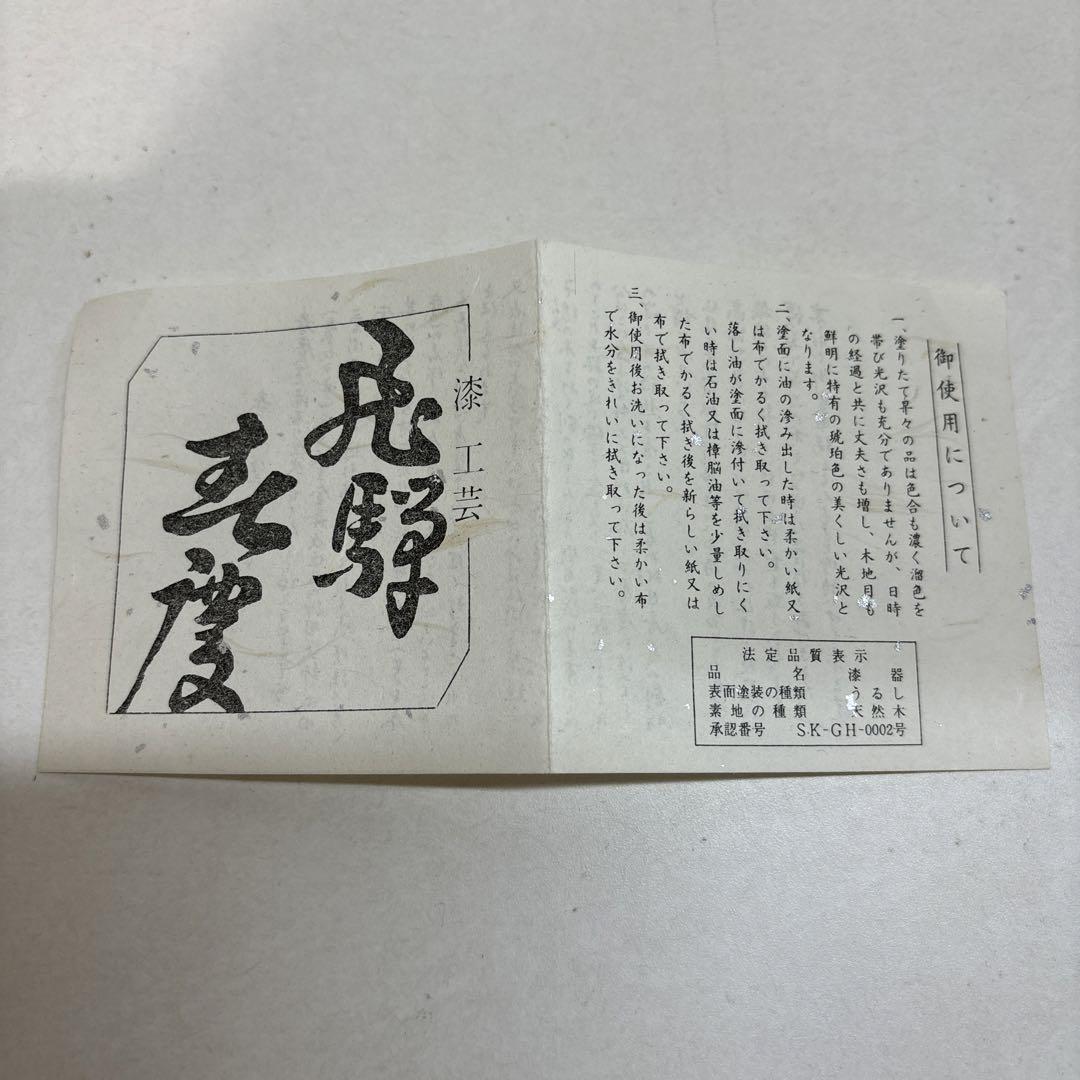 御使用について
一、塗りたて早々の品は色合も濃く溜色を
帯び光沢も充分でありませんが、日時
の経過と共に丈夫さも増し、木地目も
鮮明に特有の琥珀色の美くしい光沢と
なります。
二、塗面に油の滲み出した時は柔かい紙又
は布でかるく拭き取って下さい。
落し油が塗面に滲付いて拭き取りにく
い時は石油又は樟脳油等を少量しめし
た布でかるく拭き後を新らしい紙又は
布で拭き取って下さい。
三、御使用後お洗いになった後は柔かい布
で水分をきれいに拭き取って下さい。
法定品質表示
品名 漆器
表面塗装の種類 うるし
素地の種類 天然木
承認番号 SK-GH-0002号
漆工芸
飛騨
春慶